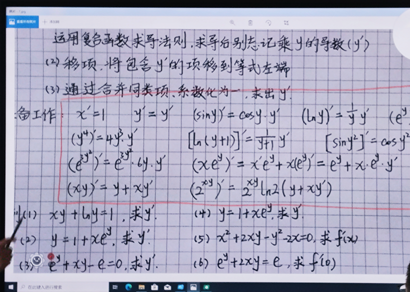 运用复合函数求导法则,求导后别忘记乘y的导数(y′)
(2)移项,将包含y′的项移到等式左端
(3)通过合并同类项、系数化为一,求出y′
备工作: x′=1 y′=y′ (siny)′=cosy·y′ (lny)′=1/y y′ (e^y
(y⁴)′=4y³·y′ [ln(y+1)]′=1/(y+1) y′ [siny²]′=cosy²
(e^{3y²})′=e^{3y²}·6y·y′ (xe^y)′=x′e^y+x(e^y)′=e^y+x·e^y·y′
(xy)′=y+xy′ (2^{xy})′=2^{xy}ln2(y+xy′)
(1) xy+lny=1,求y′. (4) y=1+xe^y,求y′.
(2) y=1+xe^y,求y′. (5) x²+2xy-y²-2x=0,求f′(x)
(3) e^y+xy-e=0,求y′. (6) e^y+2xy=e,求f′(0)